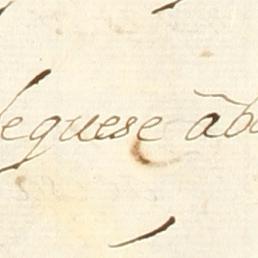 leguese âb